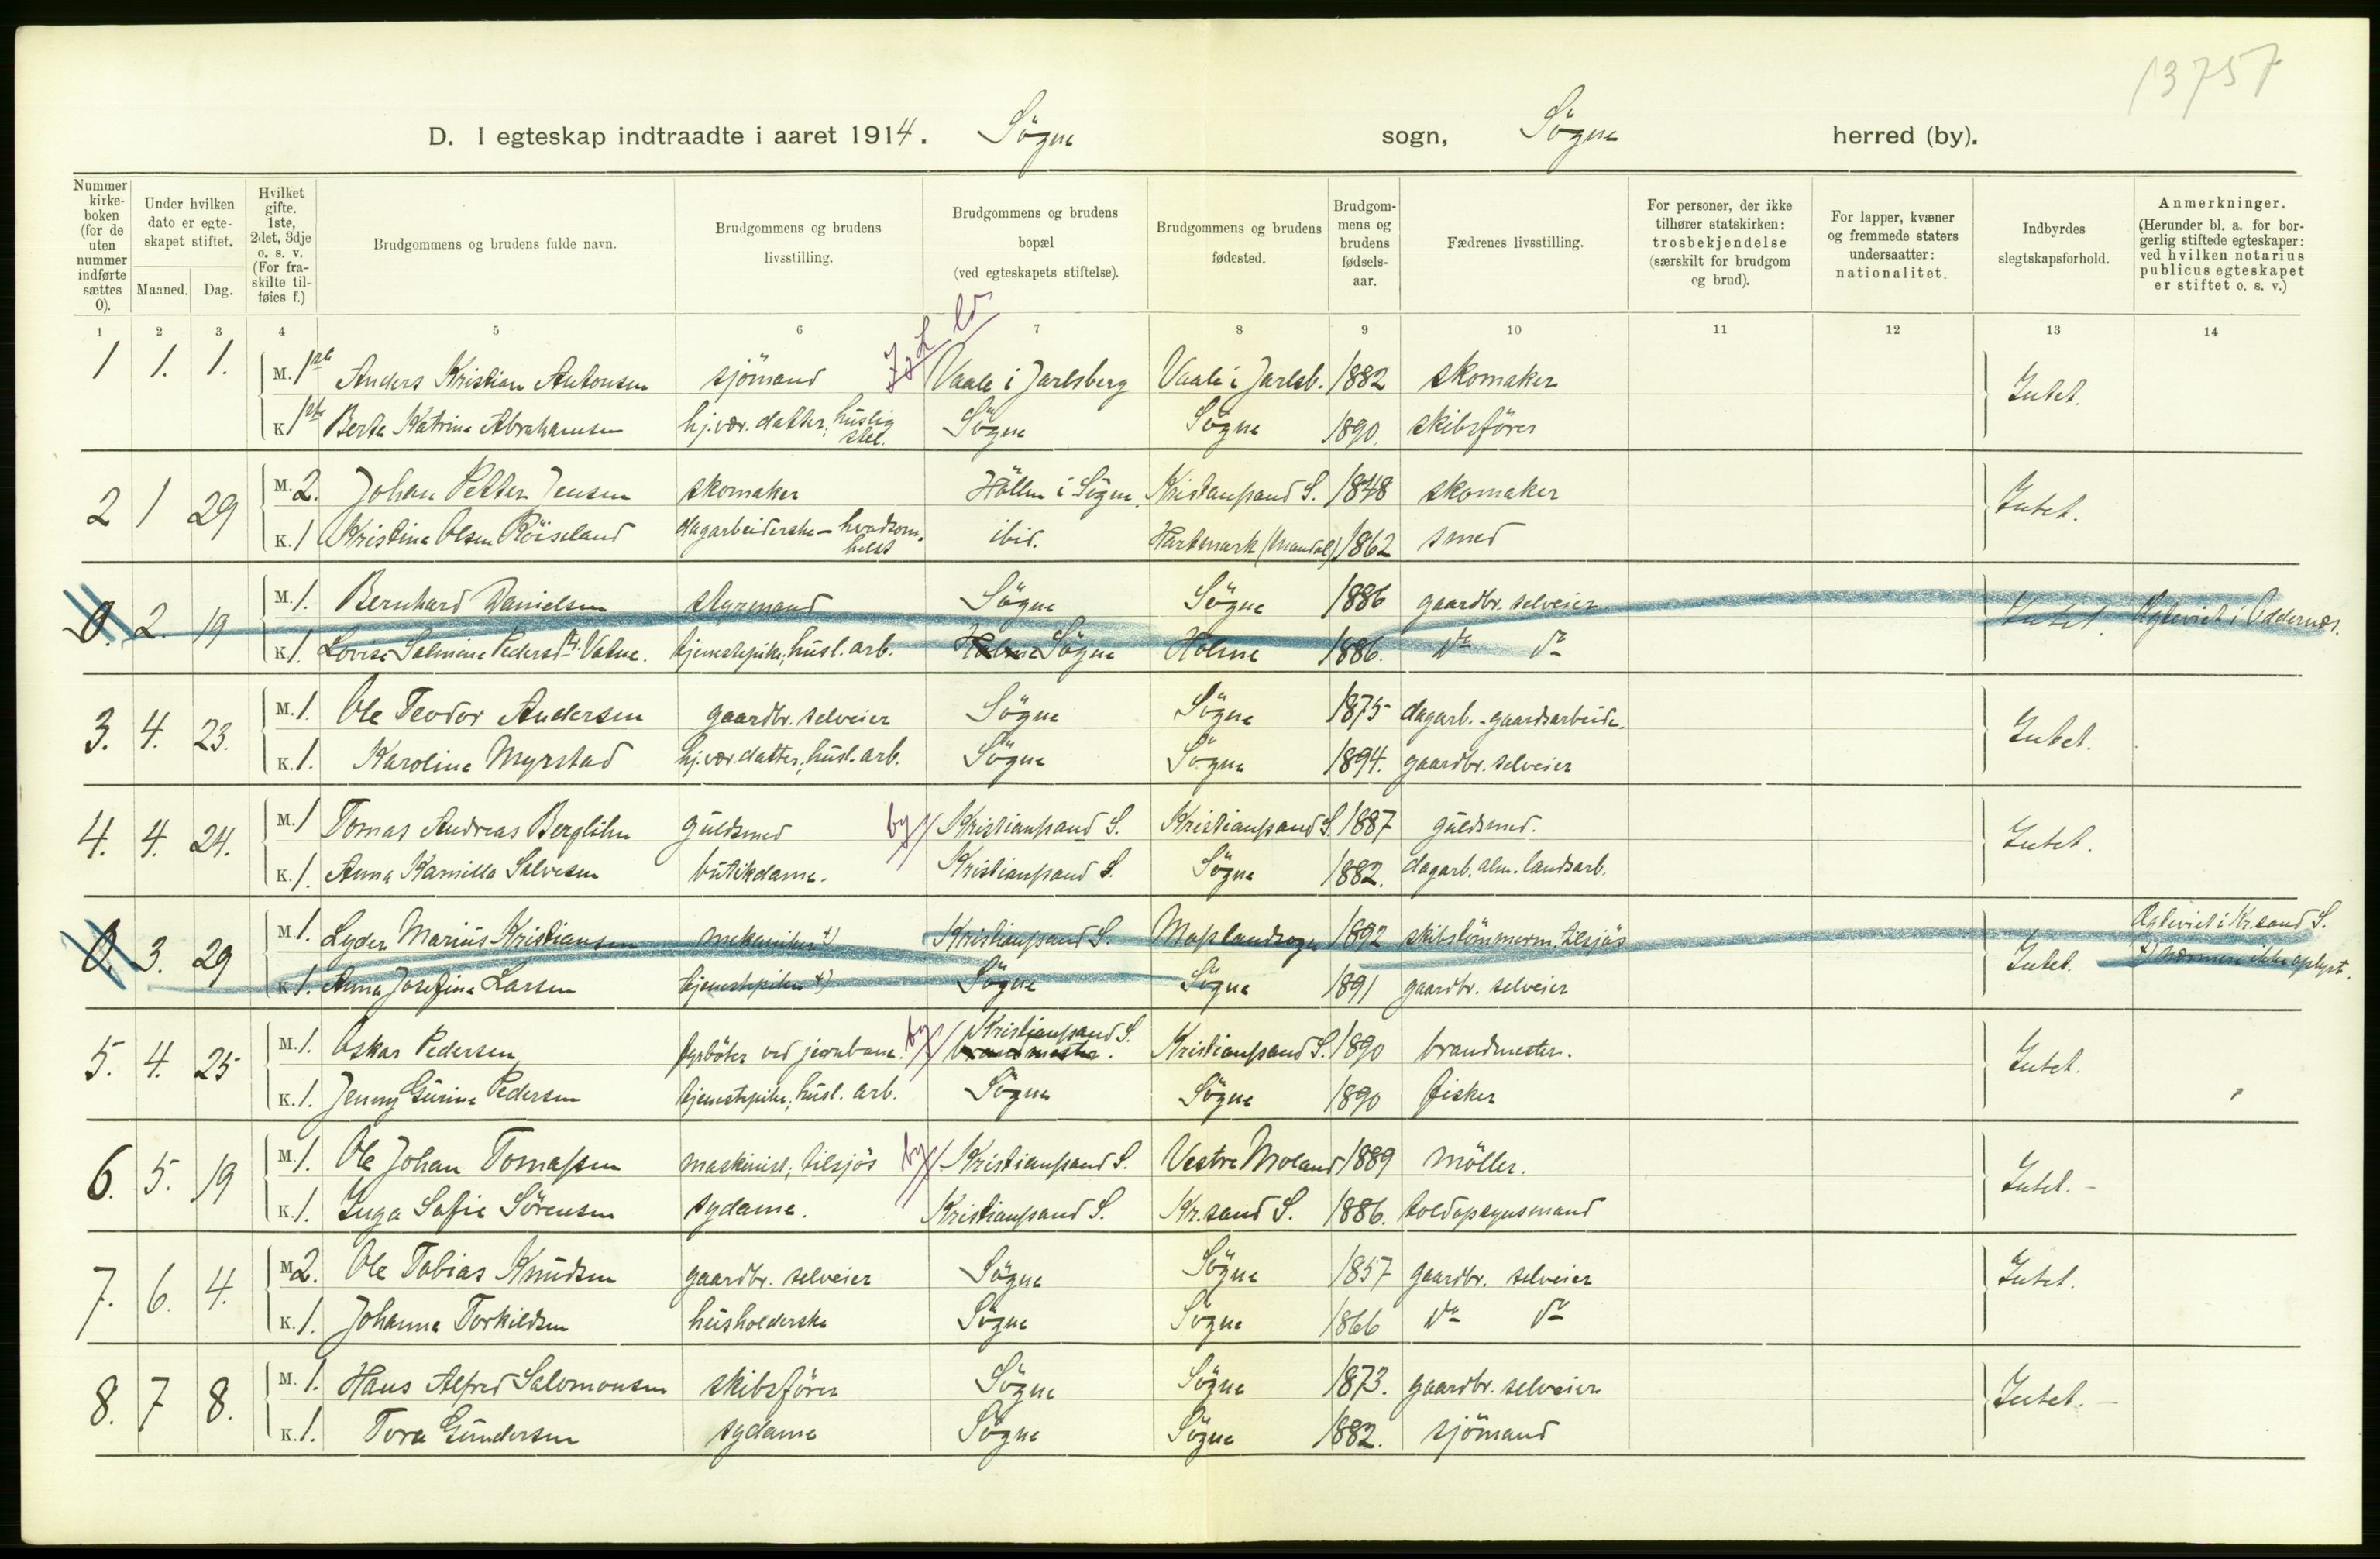 13757
D. I egteskap indtraadte i aaret 1914. Søgne sogn, Søgne herred (by).
Nummer kirke-boken (for de uten nummer indførte sættes 0).
Under hvilken dato er egte-skapet stiftet.
Maaned. Dag.
Hvilket gifte. 1ste, 2det, 3dje o. s. v. (For fra-skilte til-føies f.)
Brudgommens og brudens fulde navn.
Brudgommens og brudens livsstilling.
Brudgommens og brudens bopæl (ved egteskapets stiftelse).
Brudgommens og brudens fødested.
Brudgom-mens og brudens fødsels-aar.
Fædrenes livsstilling.
For personer, der ikke tilhører statskirken: trosbekjendelse (særskilt for brudgom og brud).
For lapper, kvæner og fremmede staters undersaatter: nationalitet.
Indbyrdes slegtskapsforhold.
Anmerkninger. (Herunder bl. a. for bor-gerlig stiftede egteskaper: ved hvilken notarius publicus egteskapet er stiftet o. s. v.)
1 2 3 4 5 6 7 8 9 10 11 12 13 14
1 1. 1. M. 1ste Anders Kristian Antonsen sjömand Vaale i Jarlsberg Vaale i Jarlsb. 1882 skomaker Intet.
K 1ste Berte Katrine Abrahamsen hj.vær. datter, huslig stel. Sögne Sögne 1890. skibsförer
2 1 29 M. 2. Johan Petter Jensen skomaker Höllen i Sögne. Kristiansand S. 1848 skomaker Intet.
K. 1 Kristine Olsen Röiseland dagarbeiderske - hvadsom-helst ibid. Hartmark (Mandal) 1862 smed
0. 2. 19 M. 1. Bernhard Danielsen styrmand Sögne Sögne 1886 gaardbr. selveier Intet. Egteviet i Oddernes.
K 1. Lovise Salmine Pedersdtr. Vatne. tjenestepike, husl. arb. Holme Sögne Holme 1886. do do
3. 4. 23. M. 1. Ole Teodor Andersen gaardbr. selveier Sögne Sögne 1875 dagarb. - gaardsarbeide. Intet.
K. 1. Karoline Myrstad hj.vær. datter, husl. arb. Sögne Sögne 1894. gaardbr. selveier
4. 4. 24. M. 1 Tomas Andreas Berglihn guldsmed by// Kristiansand S. Kristiansand S. 1887 guldsmed. Intet.
K. 1. Anna Kamilla Salvesen butikdame. Kristiansand S. Sögne 1882. dagarb. alm. landsarb.
0. 3. 29 M 1. Lyder Marius Kristiansen mekaniker x) Kristiansand S. Maplandsogn 1892 skibstömmerm. tilsjös Intet. Egteviet i Kr.sand S.
K 1. Anna Josefine Larsen tjenestepike x) Sögne Sögne 1891 gaardbr. selveier x) Nærmere ikke oplyst.
5. 4. 25 M. 1. Oskar Pedersen fyrböter ved jernbane. by// Kristiansand S. brandmester. Kristiansand S. 1890 brandmester. Intet.
K. 1. Jenny Gurine Pedersen tjenestepike, husl. arb. Sögne Sögne 1890 fisker
6. 5. 19 M. 1. Ole Johan Tomassen maskinist, tilsjös by// Kristiansand S. Vestre Moland 1889 möller. Intet. -
K. 1. Inga Sofie Sörensen sydame. Kristiansand S. Kr.sand S. 1886. toldopsynsmand
7. 6. 4. M 2. Ole Tobias Knudsen gaardbr. selveier Sögne Sögne 1857 gaardbr. selveier Intet.
K. 1. Johanne Torkildsen husholderske Sögne Sögne 1866 do do
8. 7 8. M. 1. Hans Alfred Salomonsen skibsförer Sögne Sögne 1873. gaardbr. selveier Intet. -
K. 1. Tora Gundersen sydame Sögne Sögne 1882. sjömand